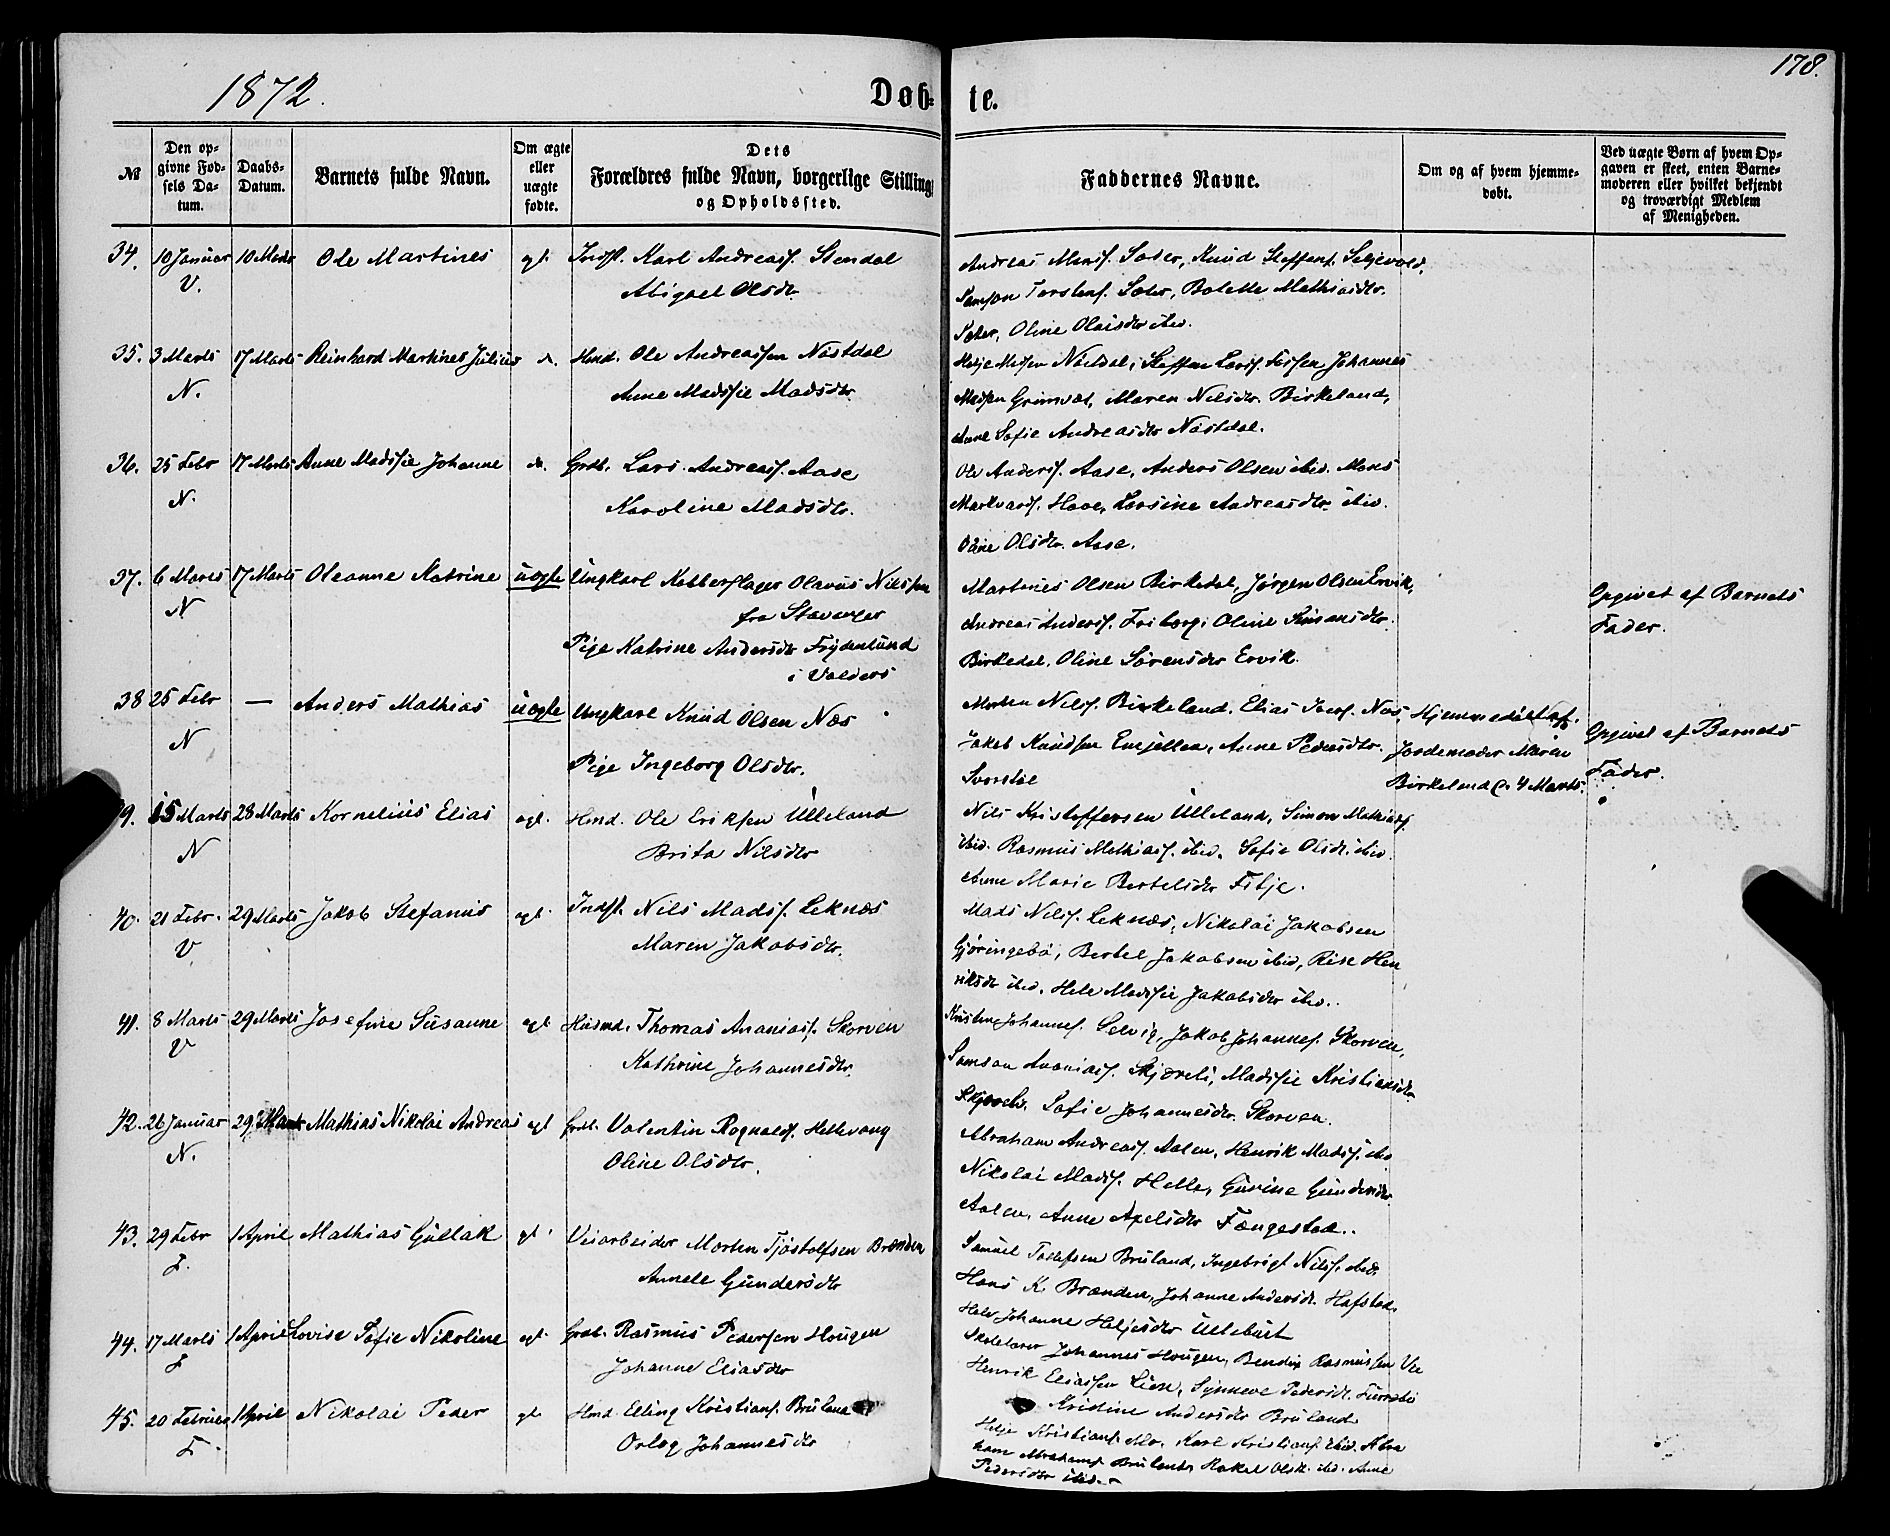 178.
1872.
Døb- te.
№
Den opgivne Fødsels Datum.
Daabs-Datum.
Barnets fulde Navn.
Om ægte eller uægte fødte.
Dets Forældres fulde Navn, borgerlige Stilling og Opholdssted.
Faddernes Navne.
Om og af hvem hjemmedøbt.
Ved uægte Børn af hvem Opgaven er skeet, enten Barnemoderen eller hvilket bekjendt og troværdigt Medlem af Menigheden.
34. 10 Januar 10 Marts Ole Martines egt. Indst. Karl Andreass. Stendal
V. Abigael Olsdr.
Andreas Mons. Sæter, Knud Steffens. Seljevold,
Samson Torstens. Sæter, Bolette Mathiasdtr.
Sæter, Oline Olaisdtr ibid.
35. 3 Marts 17 Marts Reinhard Martines Julius do. Hmd. Ole Andreassen Nøstdal
N. Anne Madssie Madsdtr.
Helje Madsen Nøstdal, Steffen Larss. Johannes
Madsen Grimset, Maren Nilsdtr. Birkeland,
Anne Sofie Andreasdtr Nøstdal.
36. 25 Febr 17 Marts Anne Madssie Johanne do. Grdb. Lars Andreass. Aase
N. Karoline Madsdtr.
Ole Anderss. Aase, Anders Olsen ibid. Mons
Markvards. Hove, Larsine Andreasdtr. ibid.
Olsdtr. Aase.
37. 6 Marts 17 Marts Oleanne Katrine uægte Ungkarl Kobberslager Olavus Nilssen
N fra Stavanger
Pige Katrine Andersdtr Frydenlund
i Valders
Martines Olsen Birkedal, Jørgen Olsen Ervik,
Andreas Anderss. Friborg, Oline Simonsdtr.
Birkedal, Oline Sørensdtr Ervik.
Opgivet af Barnets
Fader.
38 25 Febr — Anders Mathias uægte Ungkarl Knud Olsen Næs
N Pige Ingeborg Olsdtr.
Morten Nilss. Birkeland, Elias Næs,
Jakob Knudsen Endestad, Anne Pedersdtr.
Hjemmedøbt af
Jordemoder Maren
Birkeland d. 4 Marts.
Opgivet af Barnets
Fader.
39. 15 Marts 28 Marts Kornelius Elias egt. Hmd. Ole Eriksen Ulleland
N Brita Nilsdtr
Nils Kristoffersen Ulleland, Simon Mathiass.
ibid. Rasmus Mathiass. ibid. Sofie Olsdtr. ibid.
Anne Marie Bertelsdtr Fitje.
40. 21 Febr. 29 Marts Jakob Stefanus egt. Indst. Nils Madss. Leknæs
V Maren Jakobsdtr.
Mads Nilss. Leknæs, Nikolai Jakobsen
Gjøringebø, Bertel Jakobsen ibid, Rise Hen
riksdtr ibid. Hele Madssie Jakobsdtr ibid.
41. 8 Marts 29 Marts Josefine Susanne egt Husmd. Thomas Ananiass. Skorven
V Kathrine Johannesdtr.
Kristen Johanness. Selvig, Jakob Johanness. Skorven,
Samson Ananiass. Skjæreli, Madssie Kristiansdtr.
Skjæreli, Sofie Johannesdtr. Skorven.
42. 26 Januar 29 Marts Mathias Nikolai Andreas egt Grdb. Valentin Rognalds. Hellevang
N. Oline Olsdtr.
Abraham Andreass. Aalen, Henrik Madss. ibid
Nikolai Madss. Helle, Gurine Gundersdtr
Aalen, Anne Axelsdtr Fængestad.
43. 29 Febr 1 April Mathias Gullak egt Veiarbeider Morten Tjøstolfsen Brænden
F. Annele Gundersdtr
Samuel Tollefsen Bruland, Ingebrigt Nilss. ibid.
Hans K. Brænden, Johanne Andersdtr. Hafstad,
Johanne Heljesdtr Ullebust
44. 17 Marts 1 April Lovise Sofie Nikoline egt. Grdb. Rasmus Pedersen Hougen
F Johanne Eliasdtr
Skolelærer Johannes Hougen, Bendix Rasmussen Vie
Henrik Eliassen Lien, Synneve Pedersdtr. Furebø
Kristine Andersdtr Bruland
45. 20 Februar 1 April Nikolai Peder egt Hmd. Elling Kristians. Bruland
F. Orlog Johannesdtr
Helje Kristians. Mo, Karl Kristians. ibid. Abra
ham Abrahams. Bruland, Rakel Olsdtr. ibid. Anne
Pedersdtr ibid.